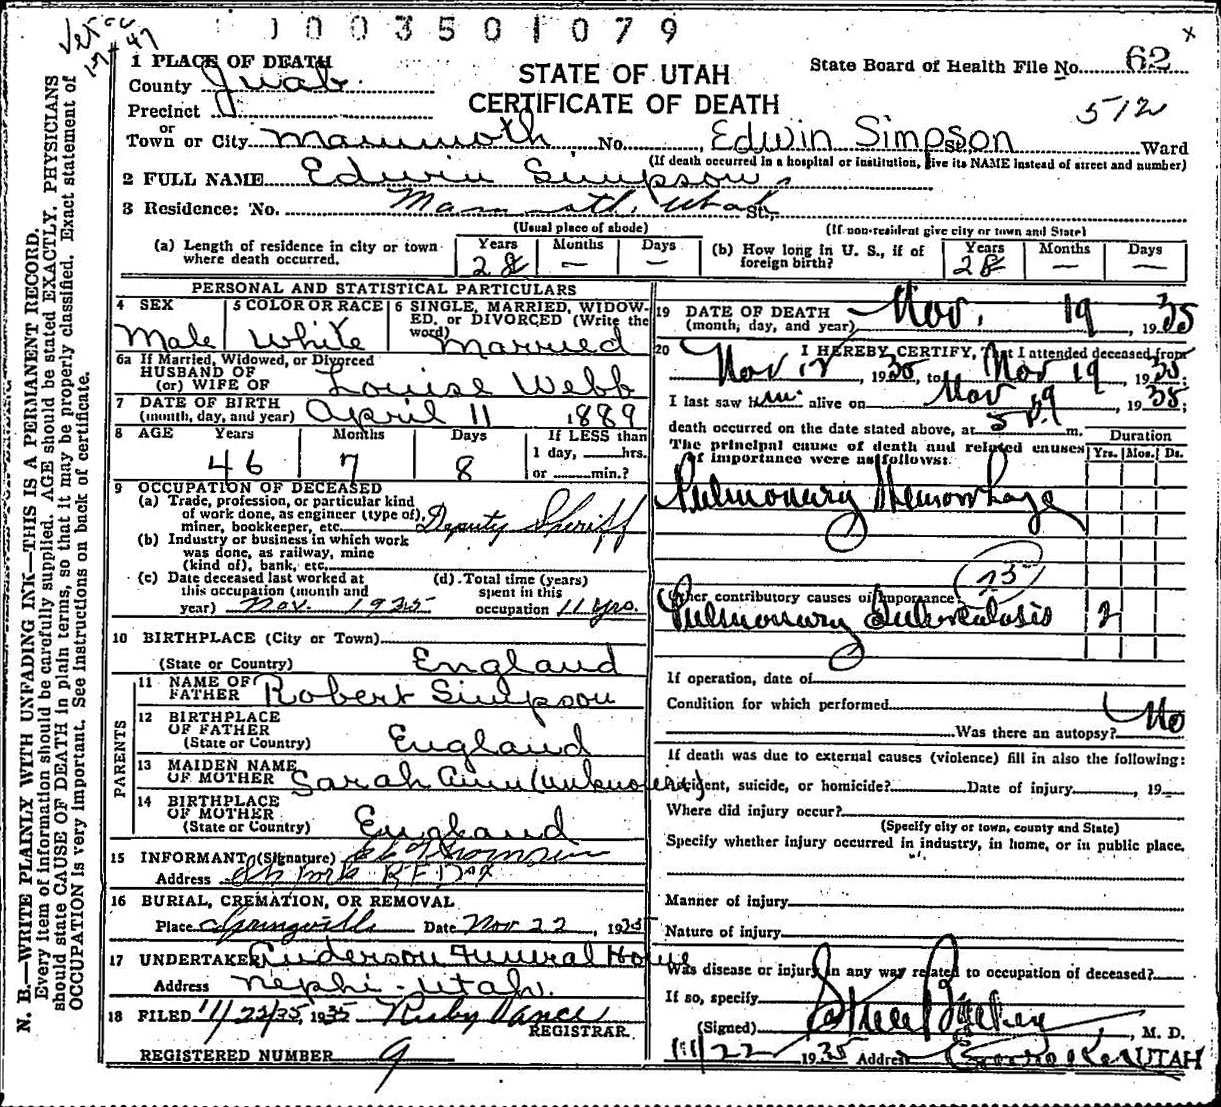 1003501079
1 PLACE OF DEATH
County Juab
STATE OF UTAH
CERTIFICATE OF DEATH
State Board of Health File No. 62
512
Precinct
or
Town or City Mammoth No. Edwin Simpson Ward
(If death occurred in a hospital or institution, give its NAME instead of street and number)
2 FULL NAME Edwin Simpson
3 Residence: No. Mammoth, Utah St.,
(Usual place of abode) (If non-resident give city or town and State)
(a) Length of residence in city or town where death occurred. Years 28 Months — Days —
(b) How long in U. S., if of foreign birth? Years 28 Months — Days —
PERSONAL AND STATISTICAL PARTICULARS
4 SEX Male
5 COLOR OR RACE White
6 SINGLE, MARRIED, WIDOWED, or DIVORCED (Write the word) Married
6a If Married, Widowed, or Divorced
HUSBAND OF
(or) WIFE OF Louise Webb
7 DATE OF BIRTH
(month, day, and year) April 11 1889
8 AGE Years Months Days If LESS than
46 7 8 1 day, hrs.
or min.?
9 OCCUPATION OF DECEASED
(a) Trade, profession, or particular kind
of work done, as engineer (type of),
miner, bookkeeper, etc. Deputy Sheriff
(b) Industry or business in which work
was done, as railway, mine
(kind of), bank, etc.
(c) Date deceased last worked at
this occupation (month and
year) Nov. 1935
(d) Total time (years)
spent in this
occupation 11 yrs.
10 BIRTHPLACE (City or Town)
(State or Country) England
PARENTS
11 NAME OF
FATHER Robert Simpson
12 BIRTHPLACE
OF FATHER
(State or Country) England
13 MAIDEN NAME
OF MOTHER Sarah Ann (unknown)
14 BIRTHPLACE
OF MOTHER
(State or Country) England
15 INFORMANT (Signature)
Address
16 BURIAL, CREMATION, OR REMOVAL
Place Springville Date Nov 22, 1935
17 UNDERTAKER Anderson Funeral Home
Address Nephi - Utah.
18 FILED 11/22/35, 1935 Vance
REGISTRAR.
REGISTERED NUMBER 9
19 DATE OF DEATH
(month, day, and year) Nov. 19, 1935
20 I HEREBY CERTIFY, That I attended deceased from
Nov 12, 1935, to Nov 19, 1935;
I last saw him alive on Nov 19, 1935;
death occurred on the date stated above, at 5 P. m.
The principal cause of death and related causes
of importance were as follows:
Duration
Yrs. Mos. Ds.
Pulmonary Hemorrhage
23
Other contributory causes of importance:
Pulmonary Tuberculosis 2
If operation, date of
Condition for which performed
Was there an autopsy? No
If death was due to external causes (violence) fill in also the following:
Accident, suicide, or homicide? Date of injury , 19
Where did injury occur?
(Specify city or town, county and State)
Specify whether injury occurred in industry, in home, or in public place.
Manner of injury
Nature of injury
Was disease or injury in any way related to occupation of deceased?
If so, specify
(Signed) , M. D.
11/22 1935 Address Eureka UTAH
N. B.—WRITE PLAINLY WITH UNFADING INK—THIS IS A PERMANENT RECORD.
Every item of information should be carefully supplied. AGE should be stated EXACTLY. PHYSICIANS
should state CAUSE OF DEATH in plain terms, so that it may be properly classified. Exact statement of
OCCUPATION is very important. See instructions on back of certificate.